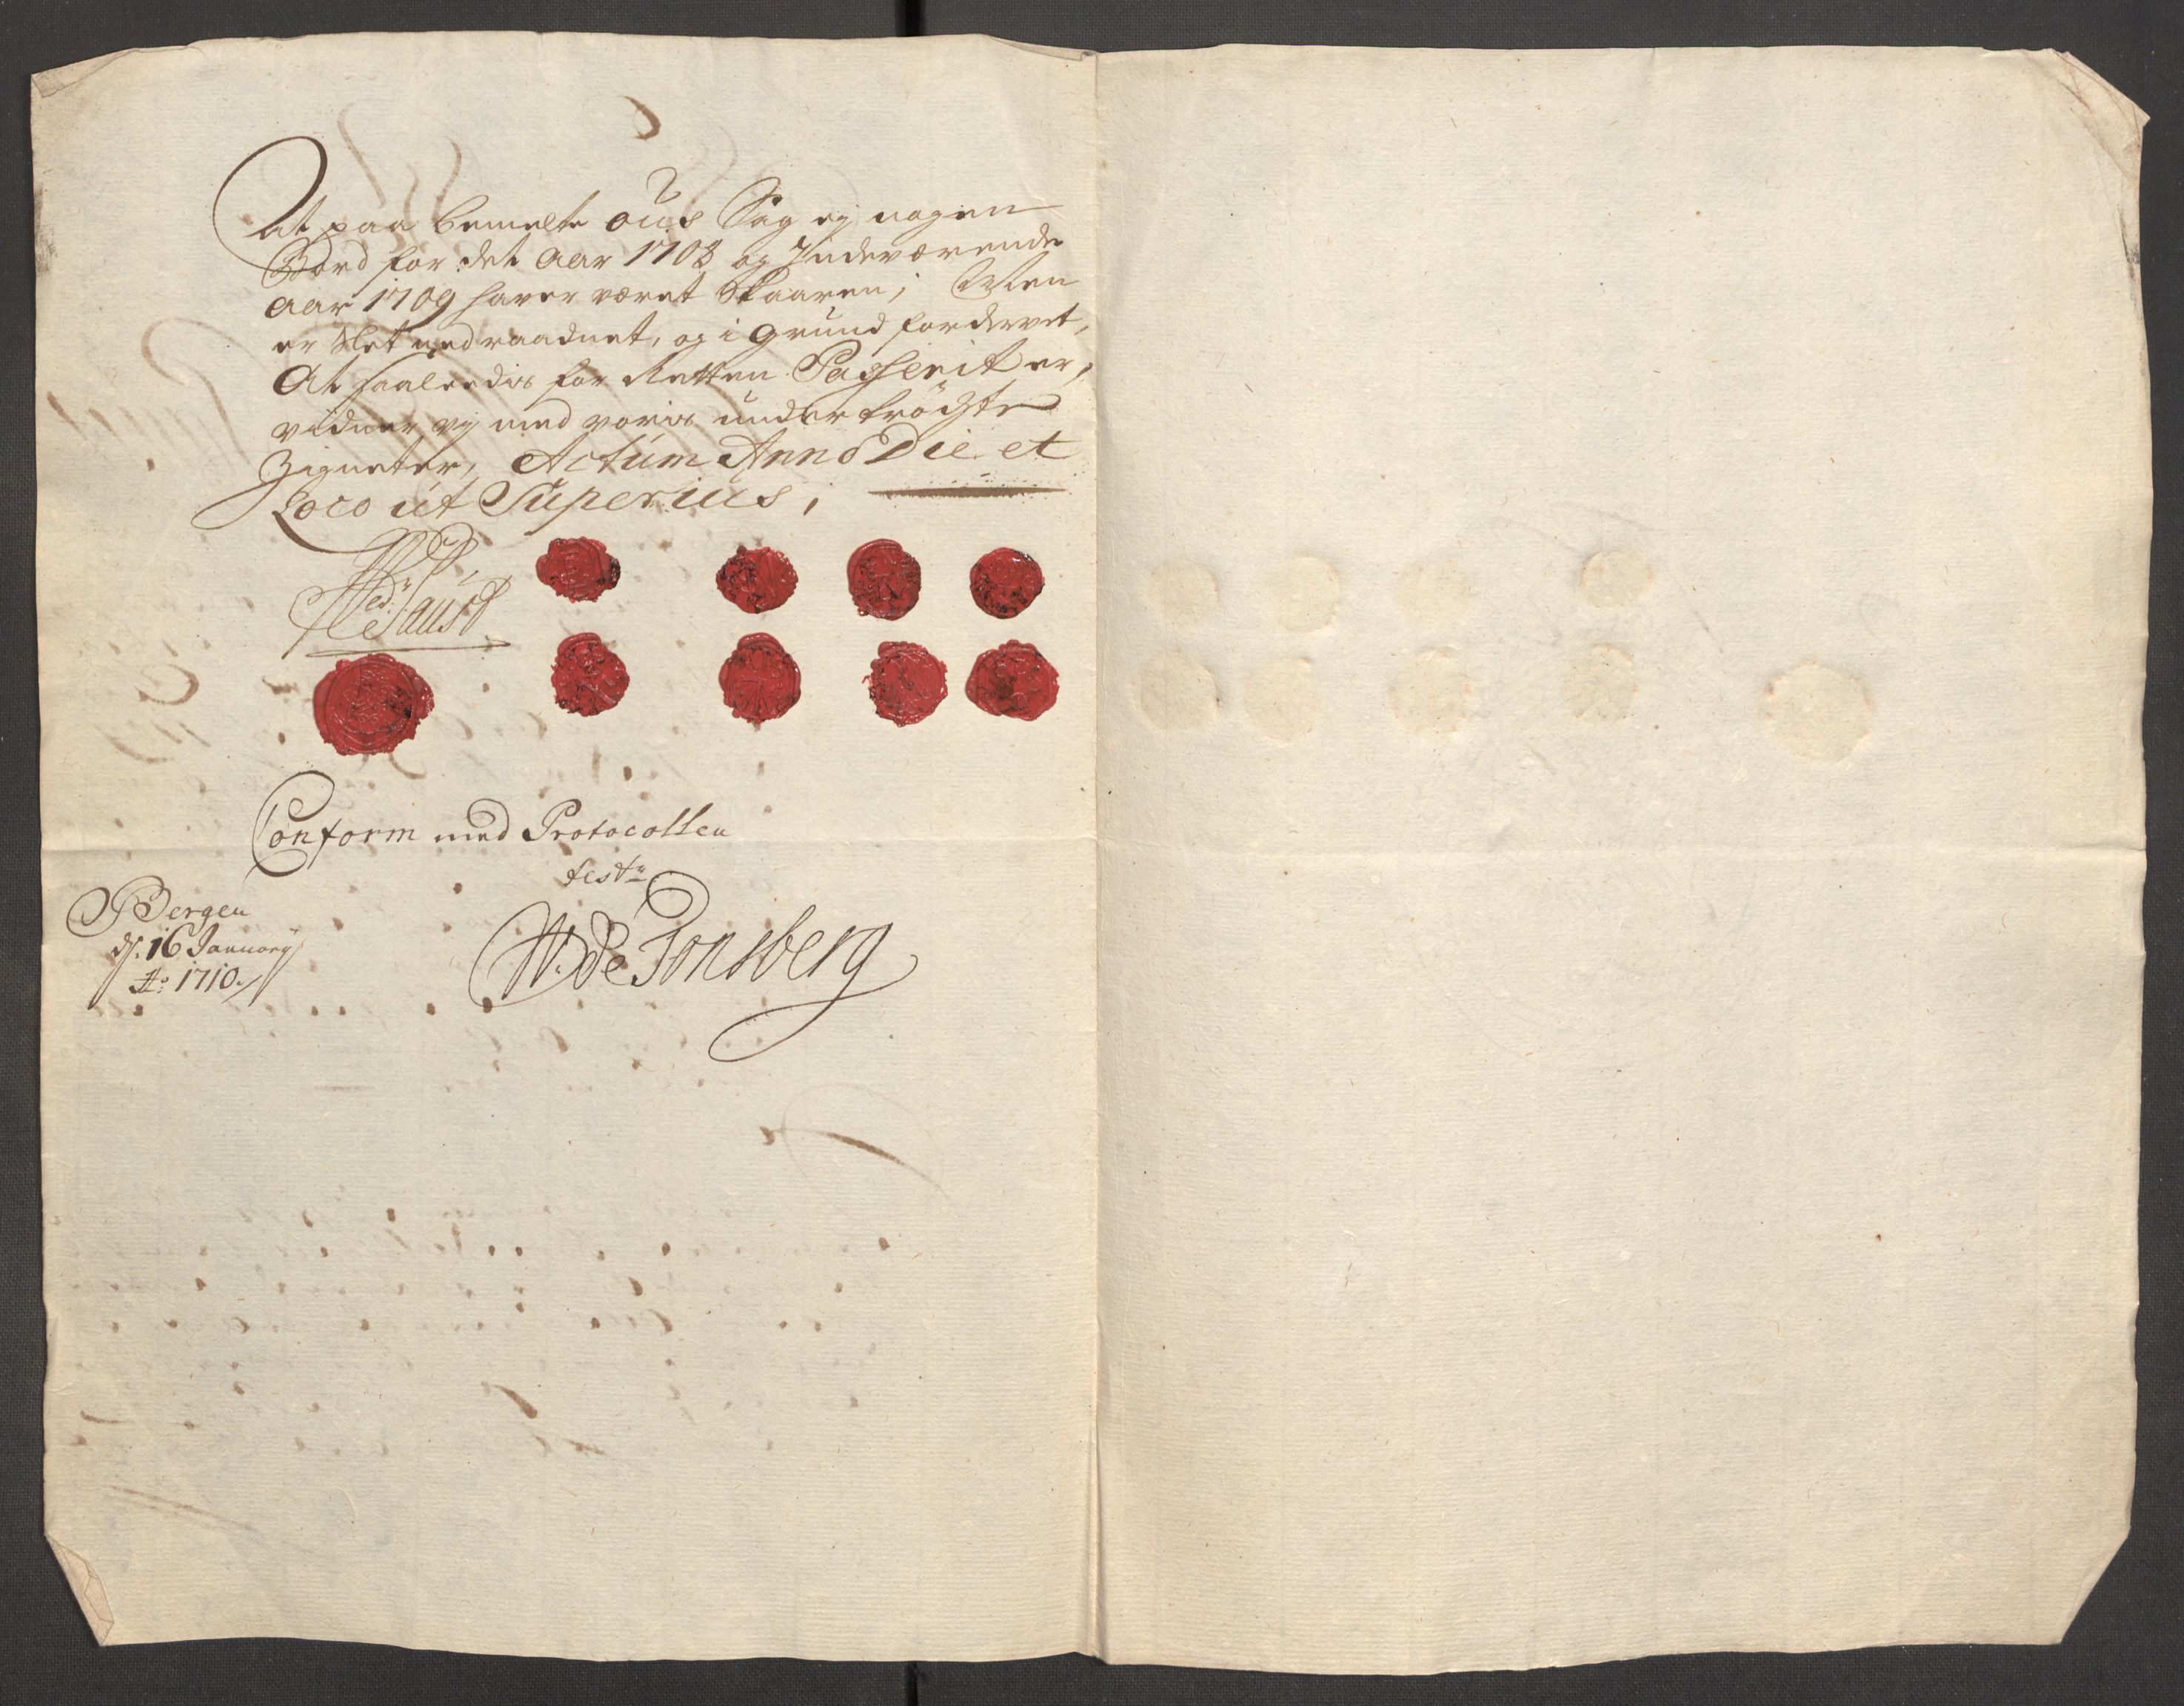 At paa bemelte ous Sag ej nogen
Bord for det Aar 1708 og Indeværende
Aar 1709 haver været Skaaren; Men
er Slet nedraadnet, og i grund fordervet,
At saaleedis for Retten Passerit er,
vidner vj med voris undertrögte
Zigneter, Actum Anno Die et
Loco ut Superius;
Conform med Protocollen
test:
Bergen
d. 16 January
Ao 1710.
W. de Tonsberg